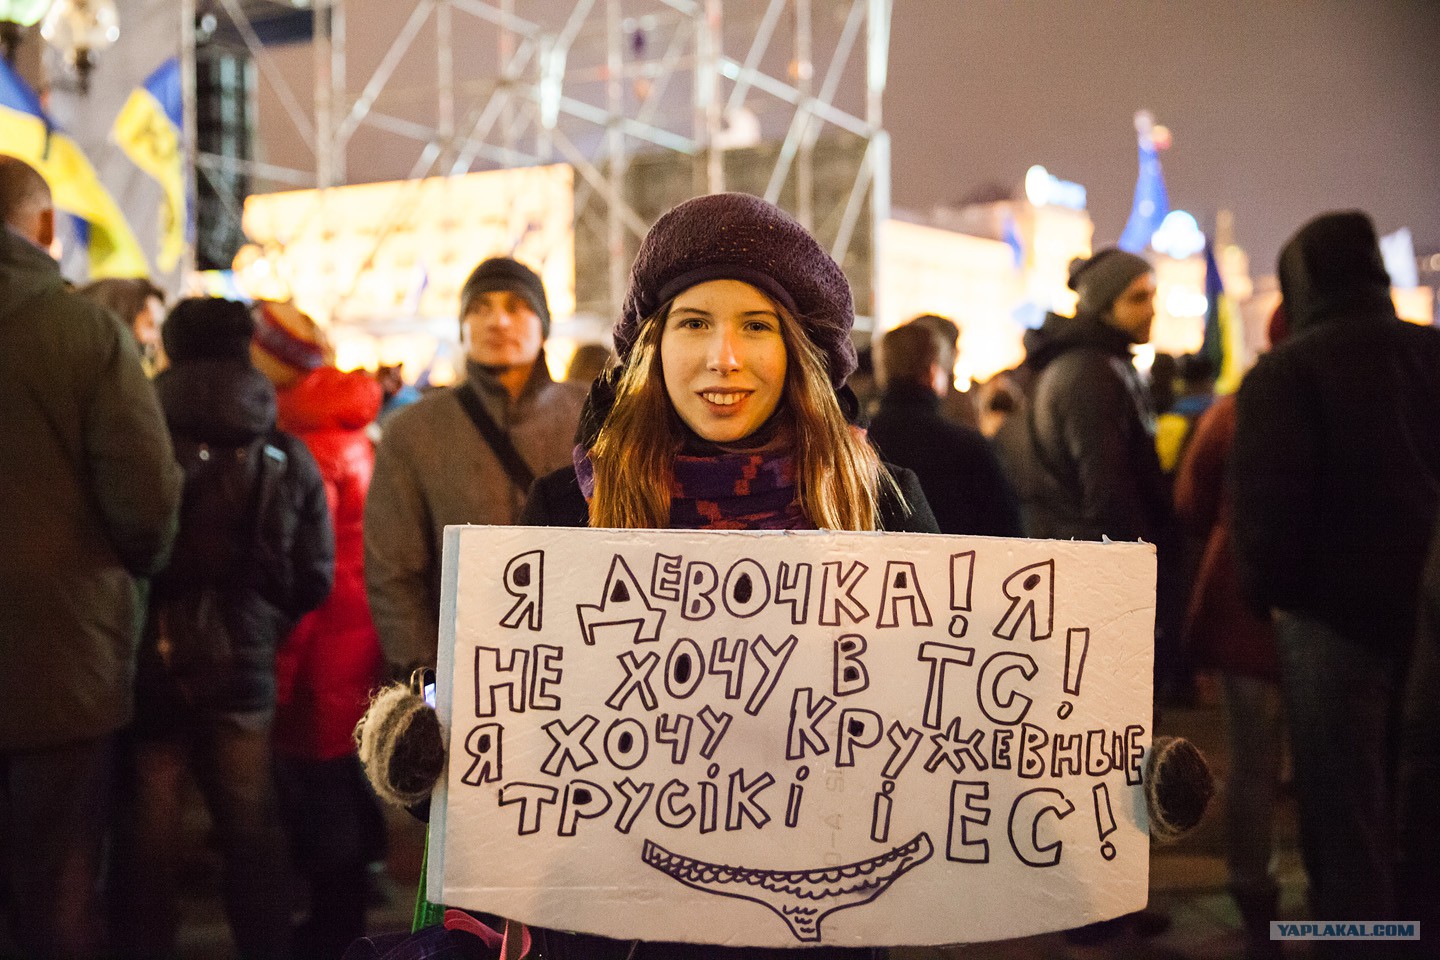 Я ДЕВОЧКА! Я
НЕ ХОЧУ В ТС!
Я ХОЧУ КРУЖЕВНЫЕ
ТРУСІКІ І ЕС!
YAPLAKAL.COM